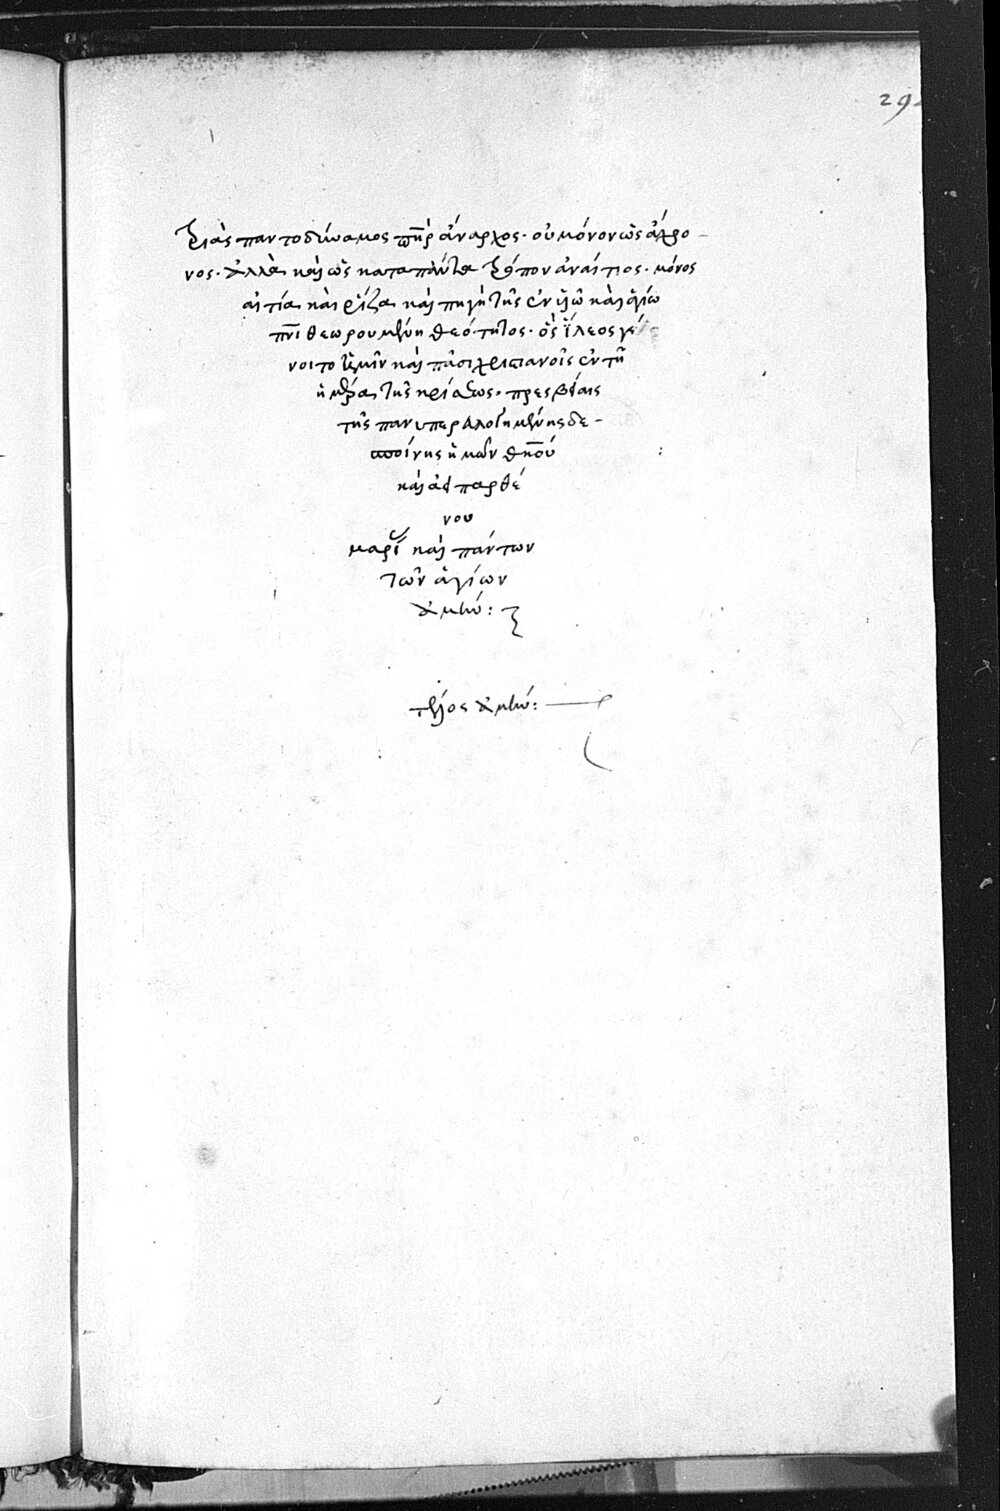 29
τριὰς παντοδύναμος πηρ ἄναρχος· οὐ μόνον ὡς ἄχρο-
νος· ἀλλὰ καὶ ὡς κατα πάντα τρόπον ἀναίτιος· μόνος
αἰτία καὶ ῥίζα καὶ πηγὴ τῆς ἐν υἱῶ καὶ ἁγίω
πνι θεωρουμένη θεότητος· ὃς ἵλεος γέ-
νοιτο ἡμῖν καὶ πᾶσι χριστιανοῖς ἐν τῆ
ἡμέρα τῆς κρίσεως· πρεσβείαις
τῆς πανυπερευλογημένης δε-
σποίνης ἡμῶν θκου
καὶ ἀειπαρθέ
νου
μαρί καὶ πάντων
τῶν ἁγίων
ἀμήν:
τέλος ἀμήν: